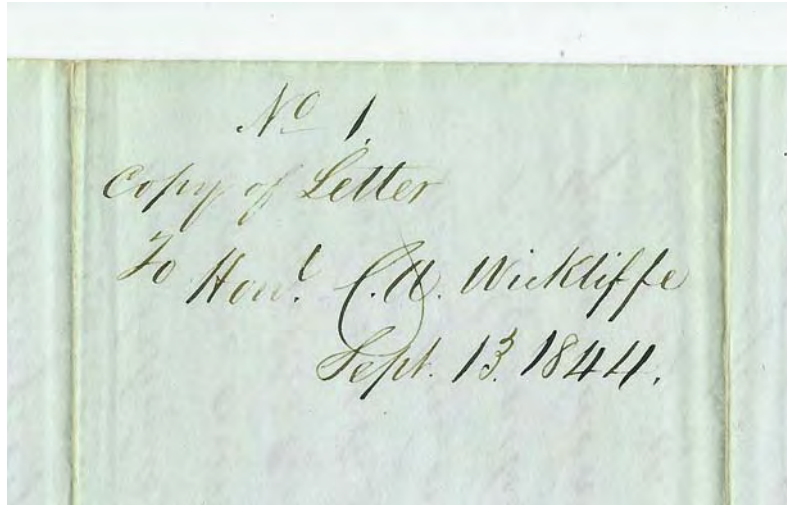 No 1.
Copy of Letter
To Honl. C.A. Wickliffe
Sept. 13. 1844.